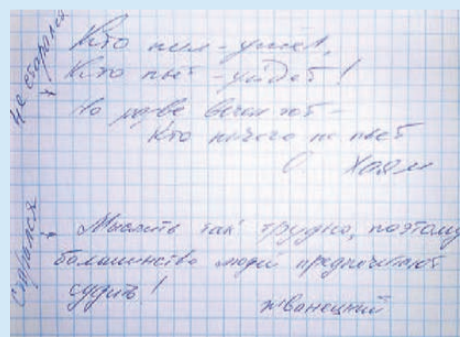 Не старался
Кто пил - ушёл,
Кто пьёт - уйдёт!
Но разве вечен тот -
Кто ничего не пьёт
О. Хаям
Старался
Мыслить так трудно, поэтому
большинство людей предпочитают
судить!
Жванецкий